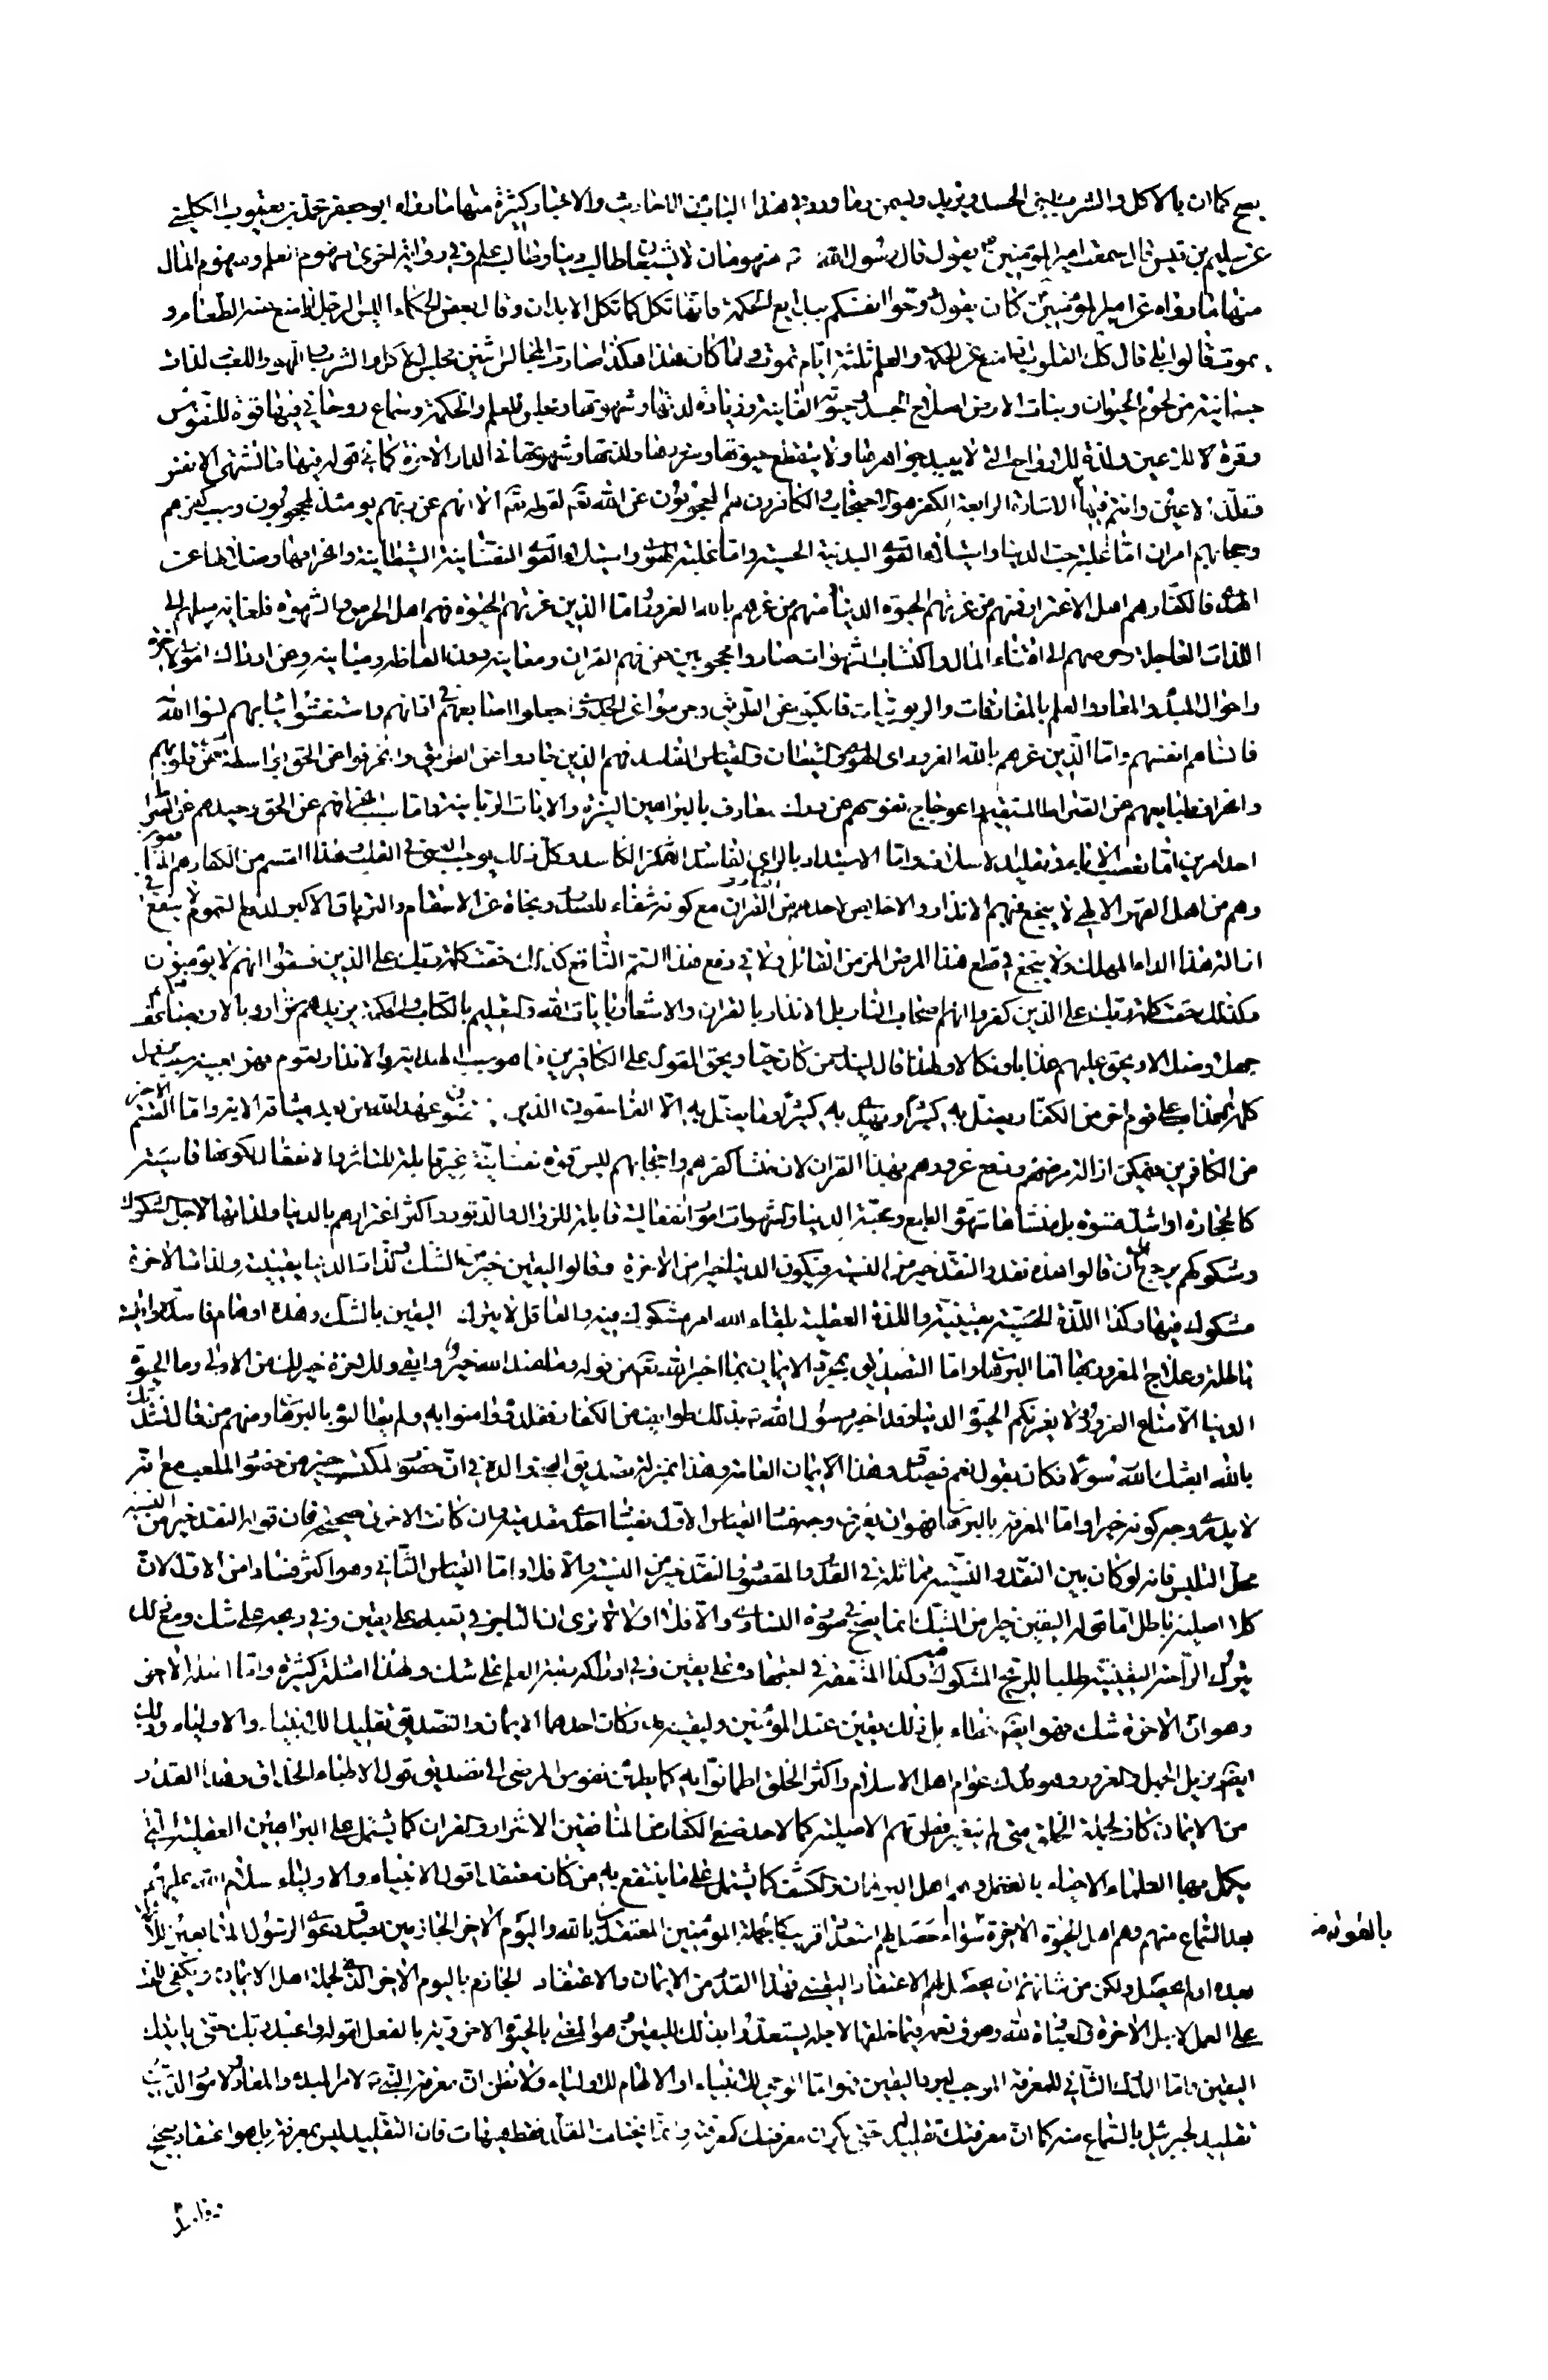 يصح كما ان بالاكل والشرب ينمى الجسد ويزيد ويسمن وما ورد في هذا الباب من الاحاديث والاخبار كثيرة منها ما رواه ابو جعفر محمد بن يعقوب الكليني
عن سليم بن قيس قال سمعت امير المؤمنين يقول قال رسول الله منهومان لا يشبعان طالب دنيا وطالب علم وفي رواية اخرى منهوم العلم ومنهوم المال
منها ما رواه عن امير المؤمنين كان يقول روحوا انفسكم ببدايع الحكمة فانها تكل كما تكل الابدان وقال بعض الحكماء اليس الرجل اذا منع عنه الطعام و
يموت قالوا بلى قال كذلك القلوب اذا منع عن الحكمة والعلم ثلثة ايام تموت ولما كان هذا هكذا صارت المجالس اثنين مجلس للاكل والشرب واللهو واللعب لذات
جسمانية من لحوم الحيوان ونبات الارض لصلاح الجسد وحيوته الفانية وزيادة لذتها وشهوتها ومجلس للعلم والحكمة وسماع روحاني فيها قوة للنفوس
وقرة للاعين ولذة للارواح التي لا يبيد جواهرها ولا ينقطع حيوتها وسرورها ولذتها وشهوتها في الدار الاخرة كما في قوله فيها ما تشتهي الانفس
وتلذ الاعين وانتم فيها الاشارة الرابعة الكفر هو الاحتجاب والكافرون هم المحجوبون عن الله تعه لقوله تعه الا انهم عن ربهم يومئذ لمحجوبون وسبب كفرهم
وحجابهم امران اما غلبة حب الدنيا واستيلاء القوى البدنية الحسية واما غلبة الهوى واستيلاء القوى النفسانية الشيطانية وانحرافها وضلالها عن
الهدى فالكفار هم اهل الاغترار فمنهم من غرتهم الحيوة الدنيا ومنهم من غرهم بالله الغرور اما الذين غرتهم الحيوة فهم اهل الحرص والشهوة فلغاية ميلهم الى
اللذات العاجلة وحرصهم الى اقتناء المال واكتساب الشهوات صاروا محجوبين عن فهم القران ومعانيه دون الفاظه ومبانيه وعن ادراك امور الاخرة
واحوال المبدء والمعاد والعلم بالمفارقات والربوبيات فا عن وحرموا عن جعلوا اصابعهم في اذانهم واستغشوا ثيابهم نسوا الله
فانساهم انفسهم واما الذين غرهم بالله الغرور اى الهوى والشيطان والقياس الفاسد فهم الذين حادوا عن الطريق وانحرفوا عن الحق بواسطة مرض قلوبهم
وانحراف طبايعهم عن الصراط المستقيم واعوجاج نفوسهم عن درك معارف بالبراهين النيرة والايات الربانية واما سبب انحرافهم عن الحق وحيدهم عن الصراط
احد امرين اما تعصب الاباء وتقليد الاسلاف واما الاستبداد بالراى الفاسد الكاسد وكل ذلك يوجب في القلب هذا القسم من الكفار هم
وهم من اهل القهر الالهي لا ينجع فيهم الانذار ولا خلاص لاحدهم من القران مع كونه شفاء للصدور ونجاة عن الاسقام والترياق الاكبر لدفع السموم لا ينفع في
ازالة هذا الداء المهلك ولا ينجع في قطع هذا المرض المزمن القاتل ولا في دفع هذا السم الناقع كذلك حقت كلمة ربك على الذين فسقوا انهم لا يؤمنون
وكذلك حقت كلمة ربك على الذين كفروا انهم اصحاب النار بل الانذار بالقران والاشعار بايات الله والتعليم بالكتاب والحكمة يزيدهم شرا ووبالا ويضاعف
جهلا وضلالا ويحق عليهم عذابا ونكالا ولهذا قال لينذر من كان حيا ويحق القول على الكافرين فما هو سبب الهداية والانذار لقوم فهو بعينه سبب يحق
كلمة العذاب على قوم اخر من الكفار يضل به كثيرا ويهدي به كثيرا وما يضل به الا الفاسقون الذين ينقضون عهد الله من بعد ميثاقه الاية واما القسم الاخر
من الكافرين فيمكن ازالة مرضهم ودفع غرورهم بهذا القران لان منشا كفرهم واحتجابهم ليس قوة نفسانية غير قابلة للتاثر والانفعال لكونها قاسية
كالحجارة او اشد قسوة بل منشاها شهوة الطبع ومحبة الدنيا والشهوات امور انفعالية قابلة للزوال والدثور واكثر اغترارهم بالدنيا ولذاتها لاجل شكوك
وشكوكهم يرجع الى ان قالوا هذه نقد والنقد خير من النسية فيكون الدنيا خيرا من الاخرة وقالوا اليقين خير من الشك ولذات الدنيا يقينية ولذات الاخرة
مشكوك فيها وكذا اللذة الحسية يقينية واللذة العقلية بلقاء الله امر مشكوك فيه والعاقل لا يترك اليقين بالشك وهذه اوهام فاسدة وقياسات
باطلة وعلاج المغرور بها اما البرهان واما التصديق بمجرد الايمان بما اخبر الله تعه من قوله وما عند الله خير وابقى وللاخرة خير لك من الاولى وما الحيوة
الدنيا الا متاع الغرور ولا يغرنكم الحيوة الدنيا وقد اخبر رسول الله بذلك طوايف من الكفار فقلدوه وامنوا به ولم يطالبوه بالبرهان ومنهم من قال نشدتك
بالله ابعثك الله رسولا فكان يقول نعم فيصدق وهذا الايمان العامة وهذا بمنزلة تصديق الصبي والده في ان حضور المكتب خير من حضور الملعب مع انه
لا يدرى وجه كونه خيرا واما المعرفة بالبرهان فهو ان يعرف وجه فساد القياس الاول بفساد احدى مقدمتيه وان كانت الاخرى صحيحة فان قوله النقد خير من النسية
محل التلبيس فانه لو كان بين النقد والنسية مماثلة في القدر والمقصود فالنقد خير من النسية والا فلا واما القياس الثاني وهو اكثر فسادا من الاول لان
كلا اصليه باطل اما قوله اليقين خير من الشك انما يصح في صورة التساوى والا فلا اولا ترى ان التاجر في تعبه على يقين وفي ربحه على شك ومع ذلك
يترك الراحة اليقينية طلبا للربح المشكوك فيه وكذا المتفقه في اجتهاده على يقين وفي ادراكه رتبة العلم على شك ولهذا امثلة كثيرة واما اصله الاخر
وهو ان الاخرة شك فهو ايضا خطاء بل ذلك يقين عند المؤمنين وليقينه مدركان احدهما الايمان والتصديق تقليدا للانبياء والاولياء وذلك
ايضا يزيل الجهل والغرور وهو مدرك عوام اهل الاسلام واكثر الخلق اطمانوا به كما يطمئن نفوس المرضى الى تصديق قول الاطباء الحذاق وهذا القدر
من الايمان كاف لجملة الخلق متى لم يتغير فطرتهم الاصلية كما لاحد صنع الكفار من المنافقين الاشرار والقران كما يشتمل على البراهين العقلية التي
يكمل بها العلماء الاحياء بالعقل وهم اهل البرهان والكشف كما يشتمل على ما ينتفع به من كان معتقدا قول الانبياء والاولياء سلام الله عليهم
بعد السماع منهم وهم اهل الحيوة الاخرة سواء حصل لهم استعداد قريب كاجلة المؤمنين المعتقدين بالله واليوم الاخر الجازمين بصدق دعوى الرسول
بالقوة منه
بعده او لم يحصل ولكن من شانهم ان يحصل لهم الاعتقاد اليقيني فهذا القدر من الايمان والاعتقاد الجازم باليوم الاخر لجملة اهل الايمان ويكفي
على العمل لاجل الاخرة والعبادة لله وصرف نعمه فيما خلقها لاجله يستعد وابذلك لليقين هو المعنى بالحيوة الاخروية بالفعل لقوله واعبد ربك حتى ياتيك
اليقين واما المدرك الثاني للمعرفة الموجب لبرد اليقين فهو اما الوحي للانبياء او الالهام للاولياء ولا تظن ان معرفة النبي لامر المبدء والمعاد ولامور الدين
تقليد لجبرئيل بالسماع منه كما ان معرفتك تقليد حتى يكون معرفتك كمعرفته وانما اختلف المقلد فقط هيهات فان التقليد ليس بمعرفة بل هو اعتقاد صحيح